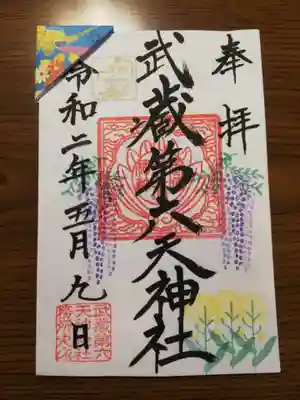 奉拝
武蔵第六天神社
令和二年五月九日